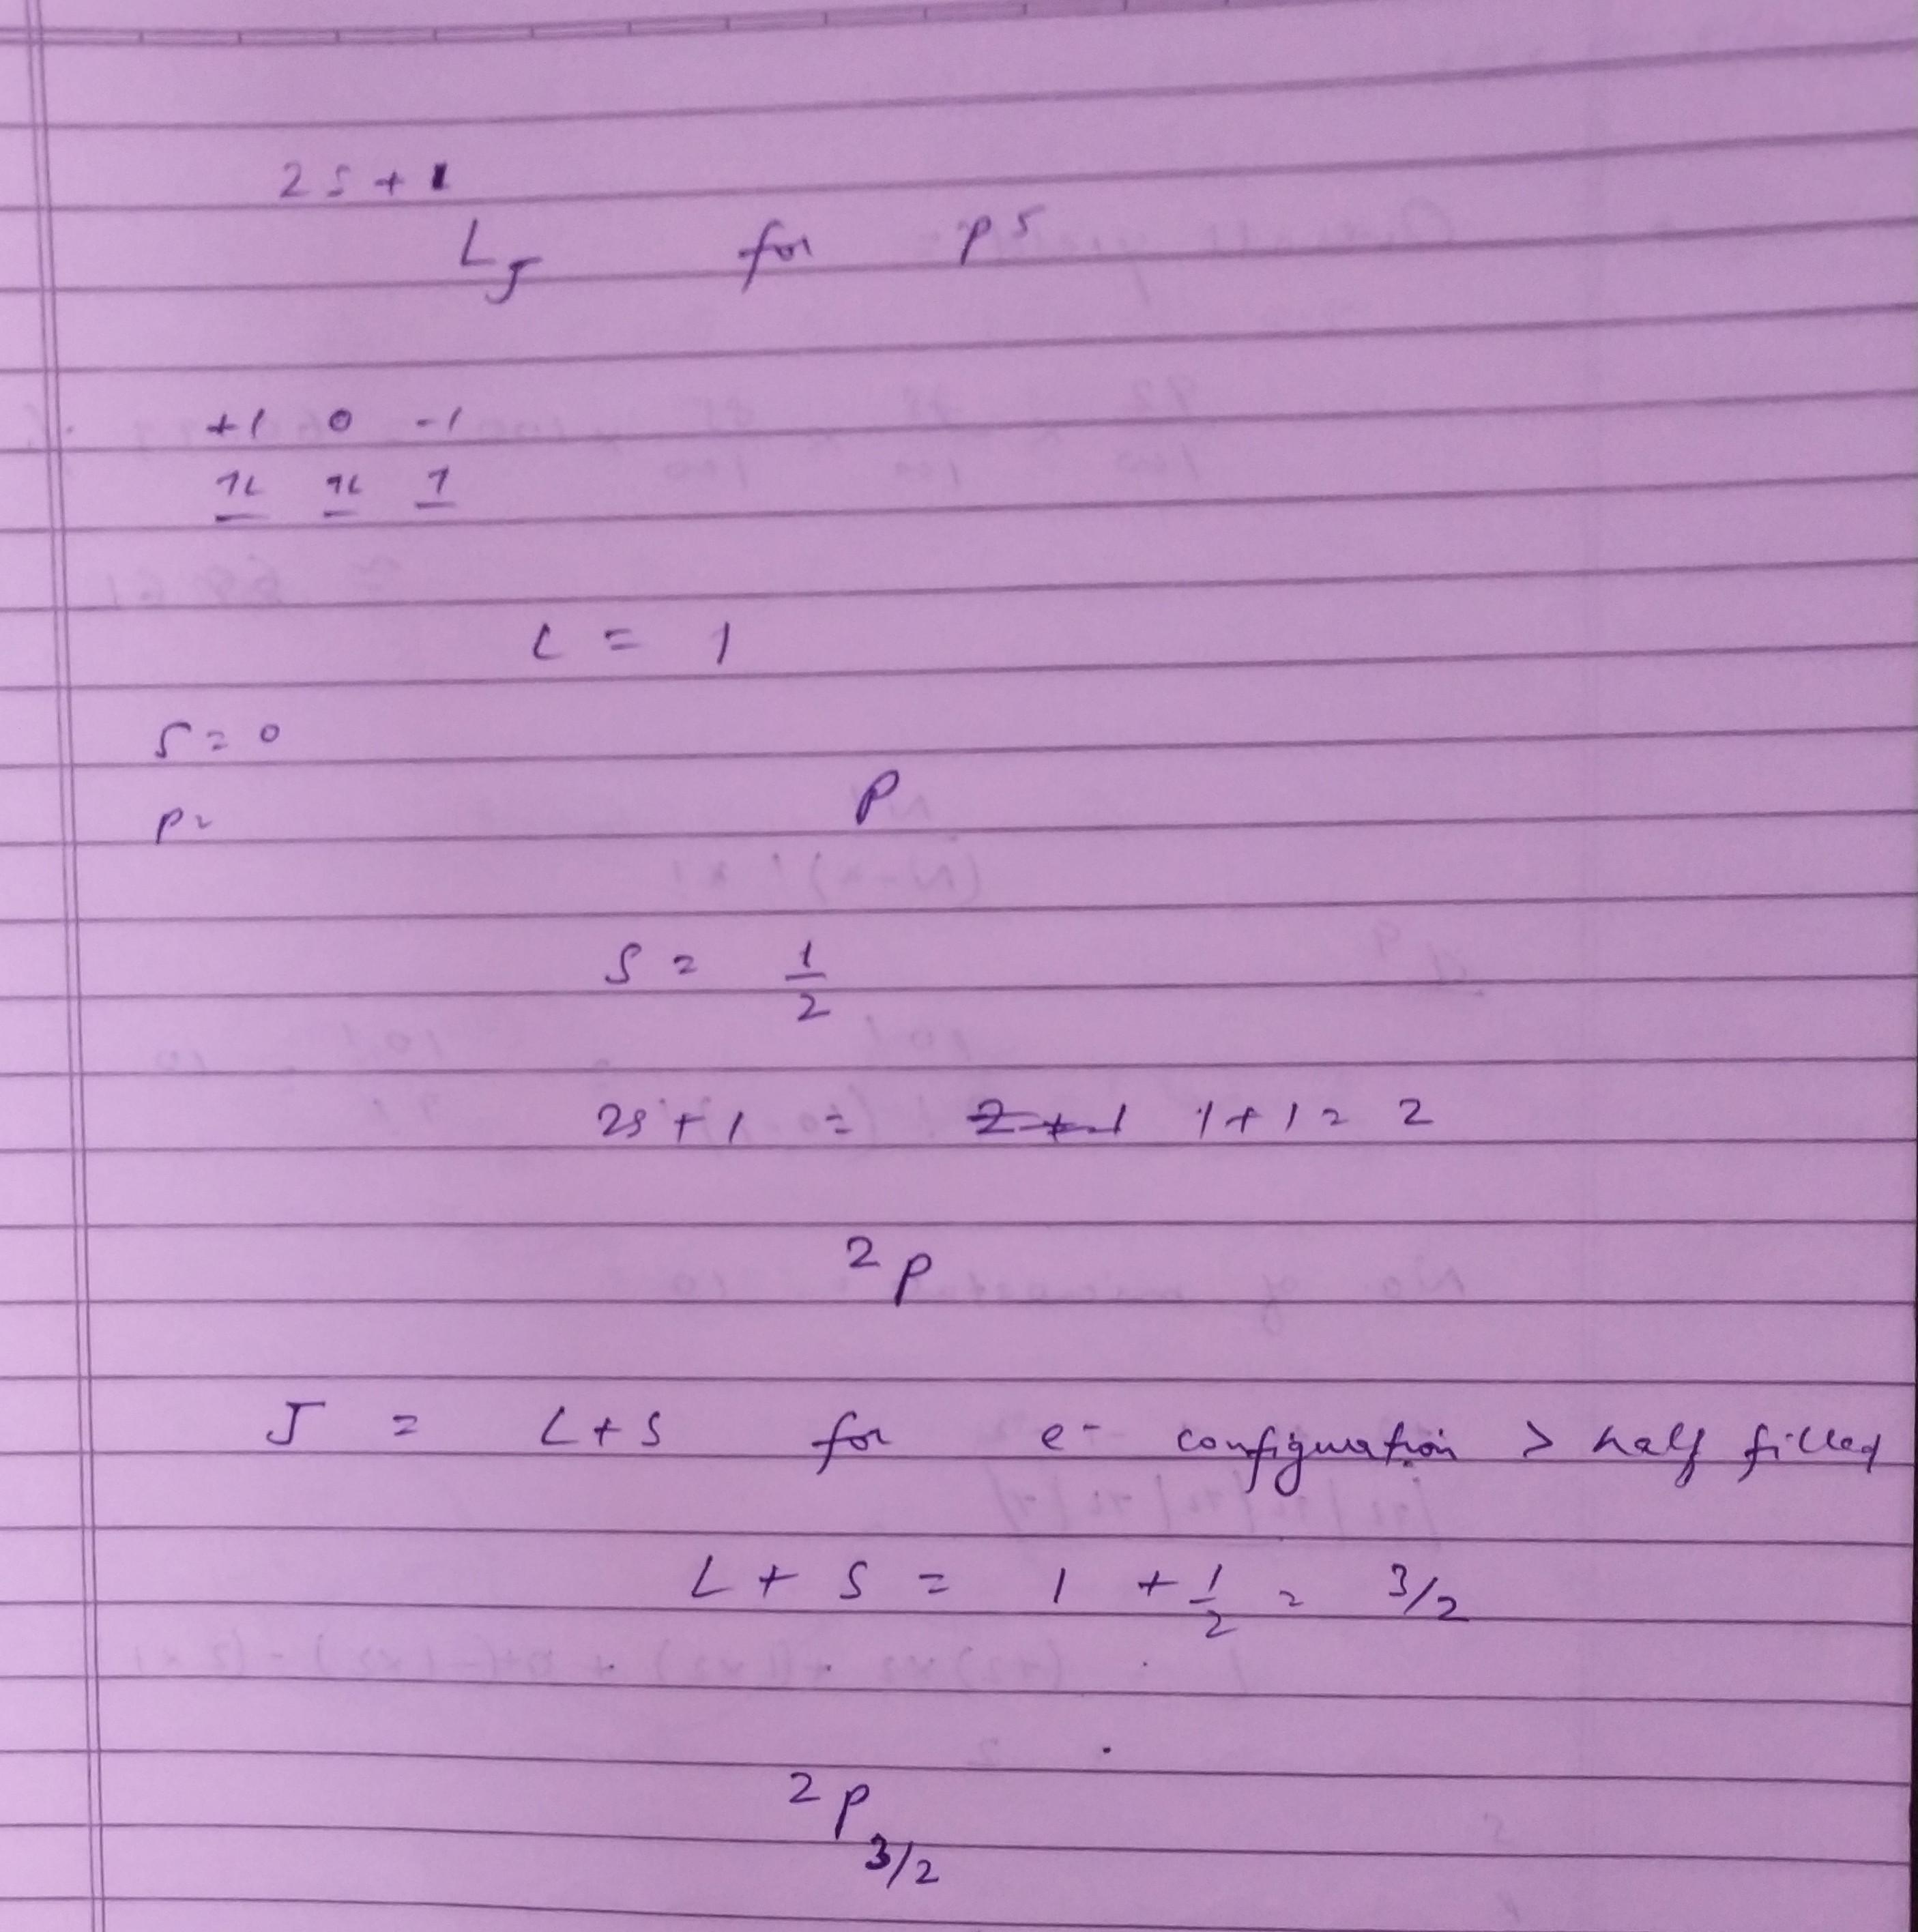 2s+1
L_J for p⁵
+1 0 -1
1L 1L 1
L = 1
S = 0
P =
P
S = 1/2
2s + 1 = 2+1 1+1 = 2
²P
J = L+S for e⁻ configuration > half filled
L + S = 1 + 1/2 = 3/2
²P_3/2